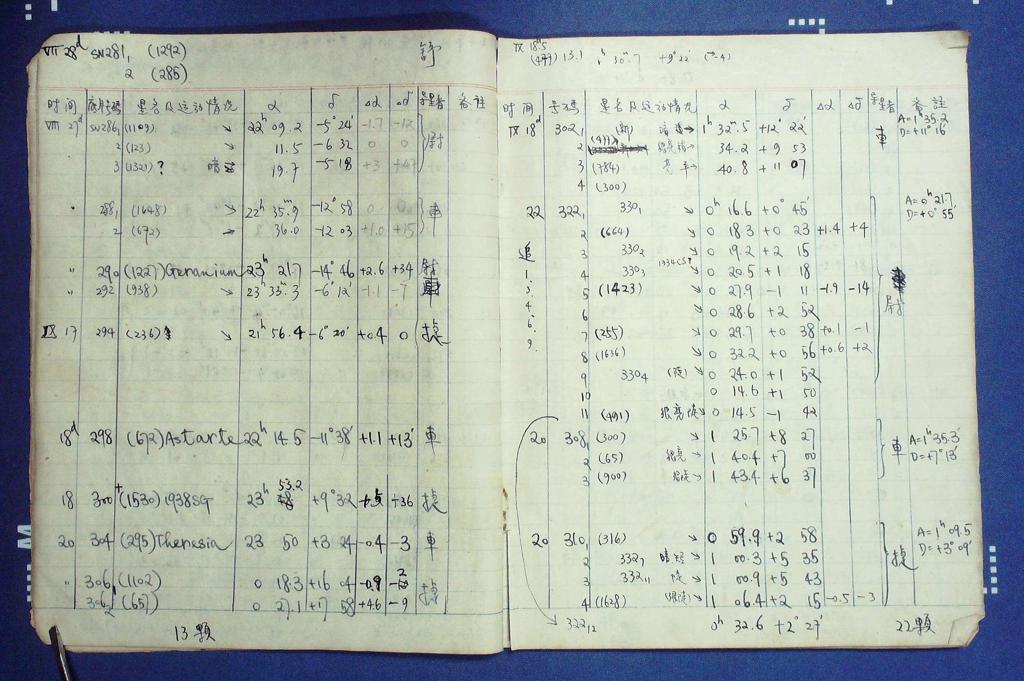 VIII 28d SN281, (1292) 舒
2 (285)
时间 底片号码 星名及运动情况 α δ Δα Δδ 备註
VIII 27d SN286,1 (1109) ↘ 22h 09.2 -5° 24' -1.7 -12
2 (123) 11.5 -6 32 0 0 尉
3 (1321)? 暗 19.7 -5 18 +3 +47
" 288,1 (1648) ↘ 22h 35m.9 -12° 58 車
2 (672) → 36.0 -12 03 +1.0 +15
" 290 (1227) Geranium 23h 21.7 -14° 46 +2.6 +34 尉
" 292 (938) ↘ 23h 35m.3 -6° 12' -1.1 -7 車
IX 17 294 (236) ↘ 21h 56.4 -6° 20' +0.4 0
18d 298 (672) Astarte 22h 14.5 -11° 38' +1.1 +13' 車
18 300 (1530) 1938SG 23h 53.2 +9° 32 +36
20 304 (295) Theresia 23 50 +3 24 -0.4 -3 車
" 306,1 (1102) 0 18.3 +16 04 -0.9
306,2 (65) 0 27.1 +7 58 +4.6 -9
13顆
IX 18d.5
(499) 13.1 1h 30m.7 +9° 22' (-4)
时间 号碼 星名及运动情况 α δ Δα Δδ 备註
IX 18d 302,1 1h 32m.5 +12° 22' 車 A=1h 35.2
D=+11° 16
2 34.2 +9 53
3 (784) 40.8 +11 07
4 (300)
22 322,1 330,1 0h 16.6 +0° 45' A=0h 21.7
D=+0° 55'
2 (664) ↘ 0 18.3 +0 23 +1.4 +4
追 3 330,2 ↘ 0 19.2 +2 15
1. 4 330,3 ↘ 0 20.5 +1 18
3. 5 (1423) ↘ 0 27.9 -1 11 -1.9 -14 尉
4. 6 0 28.6 +2 52
6. 7 (255) ↘ 0 29.7 +0 38 +0.1 -1
9. 8 (1636) ↘ 0 32.2 +0 56 +0.6 +2
9 330,4 ↘ 0 24.0 +1 52
10 0 14.6 +1 50
11 (491) ↘ 0 14.5 -1 42
20 308,1 (300) 1 25.7 +8 27 車 A=1h 35.3'
D=+7° 13'
2 (65) ↘ 1 40.4 +7 00
3 (900) ↘ 1 43.4 +6 37
20 310,1 (316) ↘ 0 59.9 +2 58 A=1h 09.5
D=+3° 09'
2 ↘ 1 00.3 +5 35
3 332,11 ↘ 1 00.9 +5 43
4 (1628) ↘ 1 06.4 +2 15 -0.5 -3
322,12 0h 32.6 +2° 27'
22顆